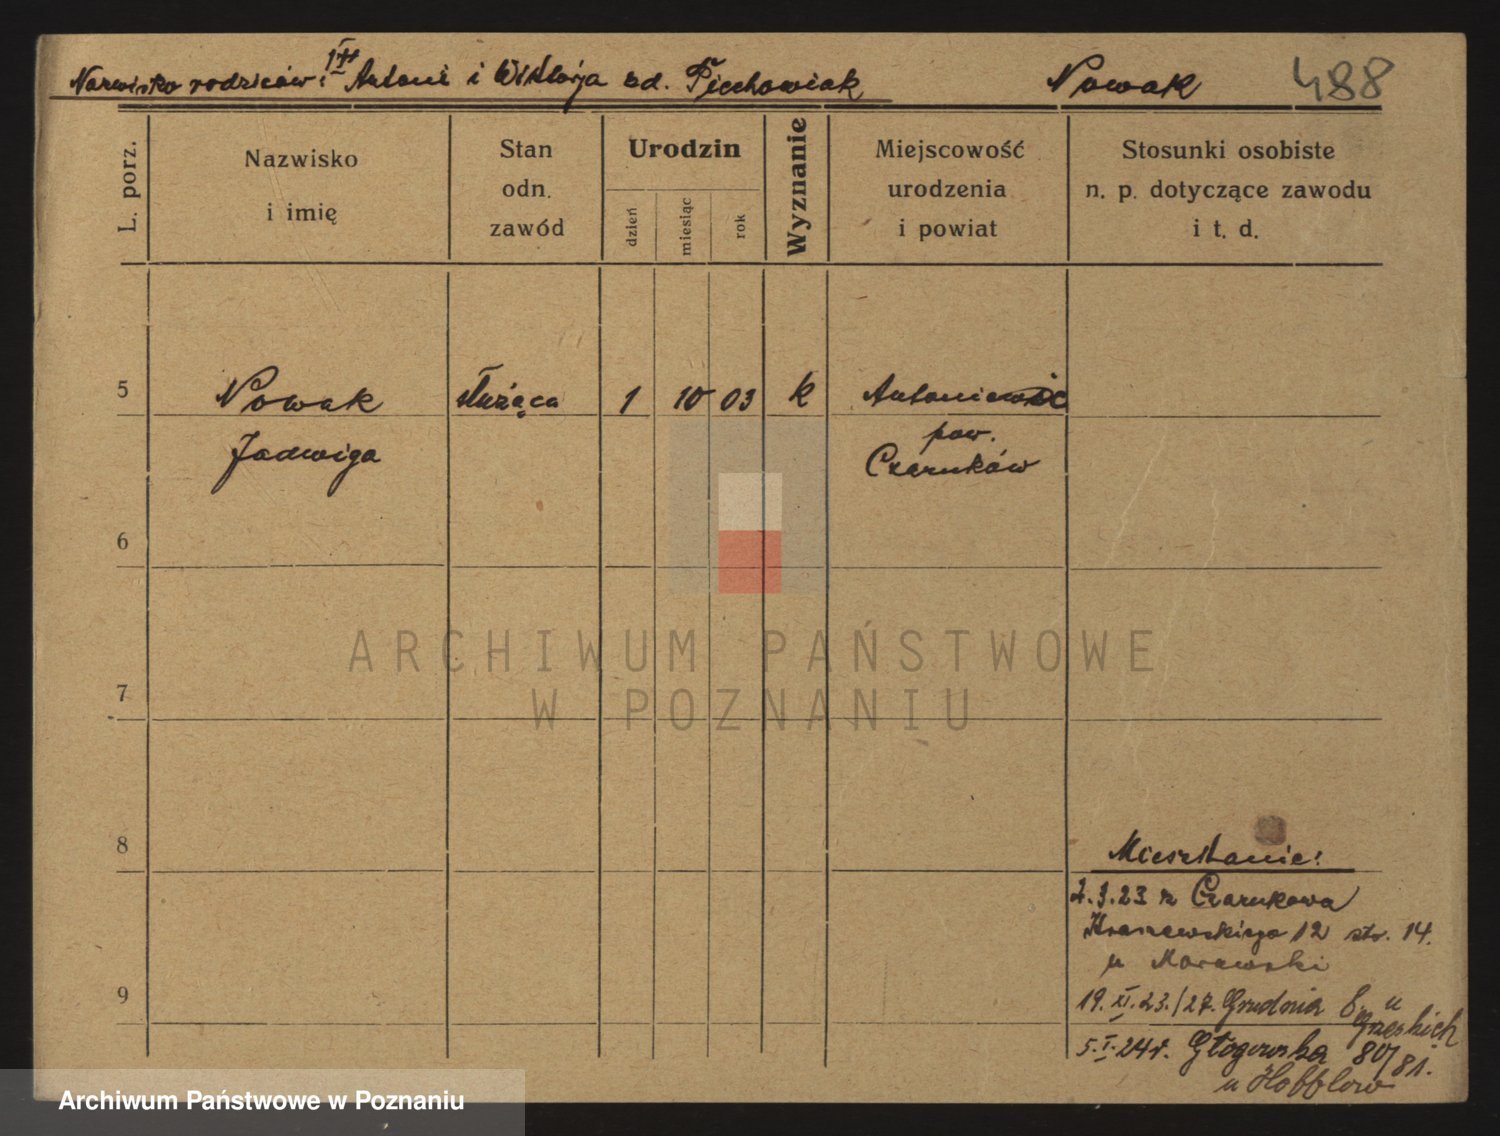 Nazwisko rodziców: Antoni i Wiktorja zd. Piechowiak Nowak 488
L. porz.
Nazwisko
i imię
Stan
odn.
zawód
Urodzin
dzień
miesiąc
rok
Wyznanie
Miejscowość
urodzenia
i powiat
Stosunki osobiste
n. p. dotyczące zawodu
i t. d.
5 Nowak służąca 1 10 03 k Antoniewo
Jadwiga
pow.
Czarnków
6
7
8
9
Mieszkanie:
2.3.23 z Czarnkowa
Kraszewskiego 12 str. 14.
u Morawski
19. XI. 23. / 27. Grudnia 8 u
Grzeskich
5. I. 24 r. Głogowska 80/81.
u
ARCHIWUM PAŃSTWOWE
W POZNANIU
Archiwum Państwowe w Poznaniu